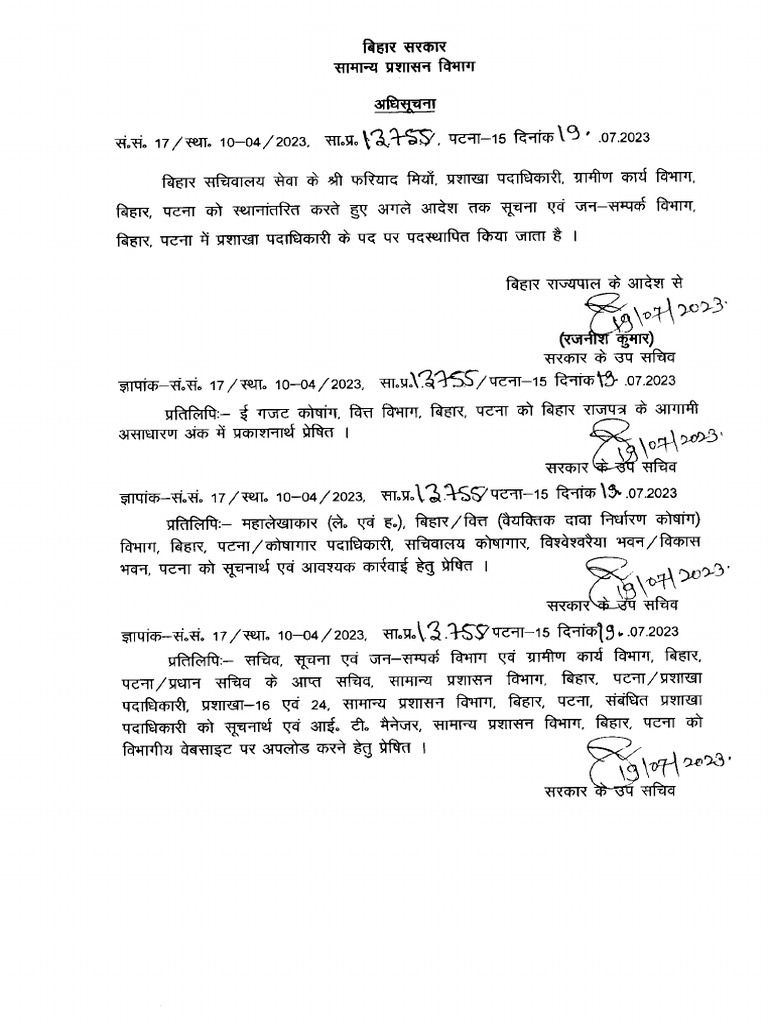 बिहार सरकार
सामान्य प्रशासन विभाग
अधिसूचना
सं.सं॰ 17/स्था॰ 10-04/2023, सा॰प्र॰ 13755, पटना-15 दिनांक 19. .07.2023
बिहार सचिवालय सेवा के श्री फरियाद मियाँ, प्रशाखा पदाधिकारी, ग्रामीण कार्य विभाग,
बिहार, पटना को स्थानांतरित करते हुए अगले आदेश तक सूचना एवं जन-सम्पर्क विभाग,
बिहार, पटना में प्रशाखा पदाधिकारी के पद पर पदस्थापित किया जाता है ।
बिहार राज्यपाल के आदेश से
19/07/2023.
(रजनीश कुमार)
सरकार के उप सचिव
ज्ञापांक-सं.सं॰ 17/स्था॰ 10-04/2023, सा॰प्र॰ 13755/पटना-15 दिनांक 19 .07.2023
प्रतिलिपिः- ई गजट कोषांग, वित्त विभाग, बिहार, पटना को बिहार राजपत्र के आगामी
असाधारण अंक में प्रकाशनार्थ प्रेषित ।
19/07/2023.
सरकार के उप सचिव
ज्ञापांक-सं.सं॰ 17/स्था॰ 10-04/2023, सा॰प्र॰ 13755/पटना-15 दिनांक 19. .07.2023
प्रतिलिपिः- महालेखाकार (ले. एवं ह.), बिहार/वित्त (वैयक्तिक दावा निर्धारण कोषांग)
विभाग, बिहार, पटना/कोषागार पदाधिकारी, सचिवालय कोषागार, विश्वेश्वरैया भवन/विकास
भवन, पटना को सूचनार्थ एवं आवश्यक कार्रवाई हेतु प्रेषित ।
19/07/2023.
सरकार के उप सचिव
ज्ञापांक-सं.सं॰ 17/स्था॰ 10-04/2023, सा॰प्र॰ 13755 पटना-15 दिनांक 19. .07.2023
प्रतिलिपिः- सचिव, सूचना एवं जन-सम्पर्क विभाग एवं ग्रामीण कार्य विभाग, बिहार,
पटना/प्रधान सचिव के आप्त सचिव, सामान्य प्रशासन विभाग, बिहार, पटना/प्रशाखा
पदाधिकारी, प्रशाखा-16 एवं 24, सामान्य प्रशासन विभाग, बिहार, पटना, संबंधित प्रशाखा
पदाधिकारी को सूचनार्थ एवं आई. टी. मैनेजर, सामान्य प्रशासन विभाग, बिहार, पटना को
विभागीय वेबसाइट पर अपलोड करने हेतु प्रेषित ।
19/07/2023.
सरकार के उप सचिव